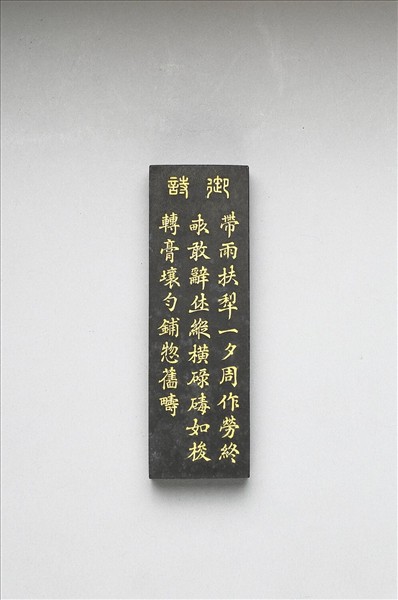 御詩
帶雨扶犁一夕周作勞終
畝敢辭休縱橫碌碡如梭
轉膏壤勻鋪惣舊疇